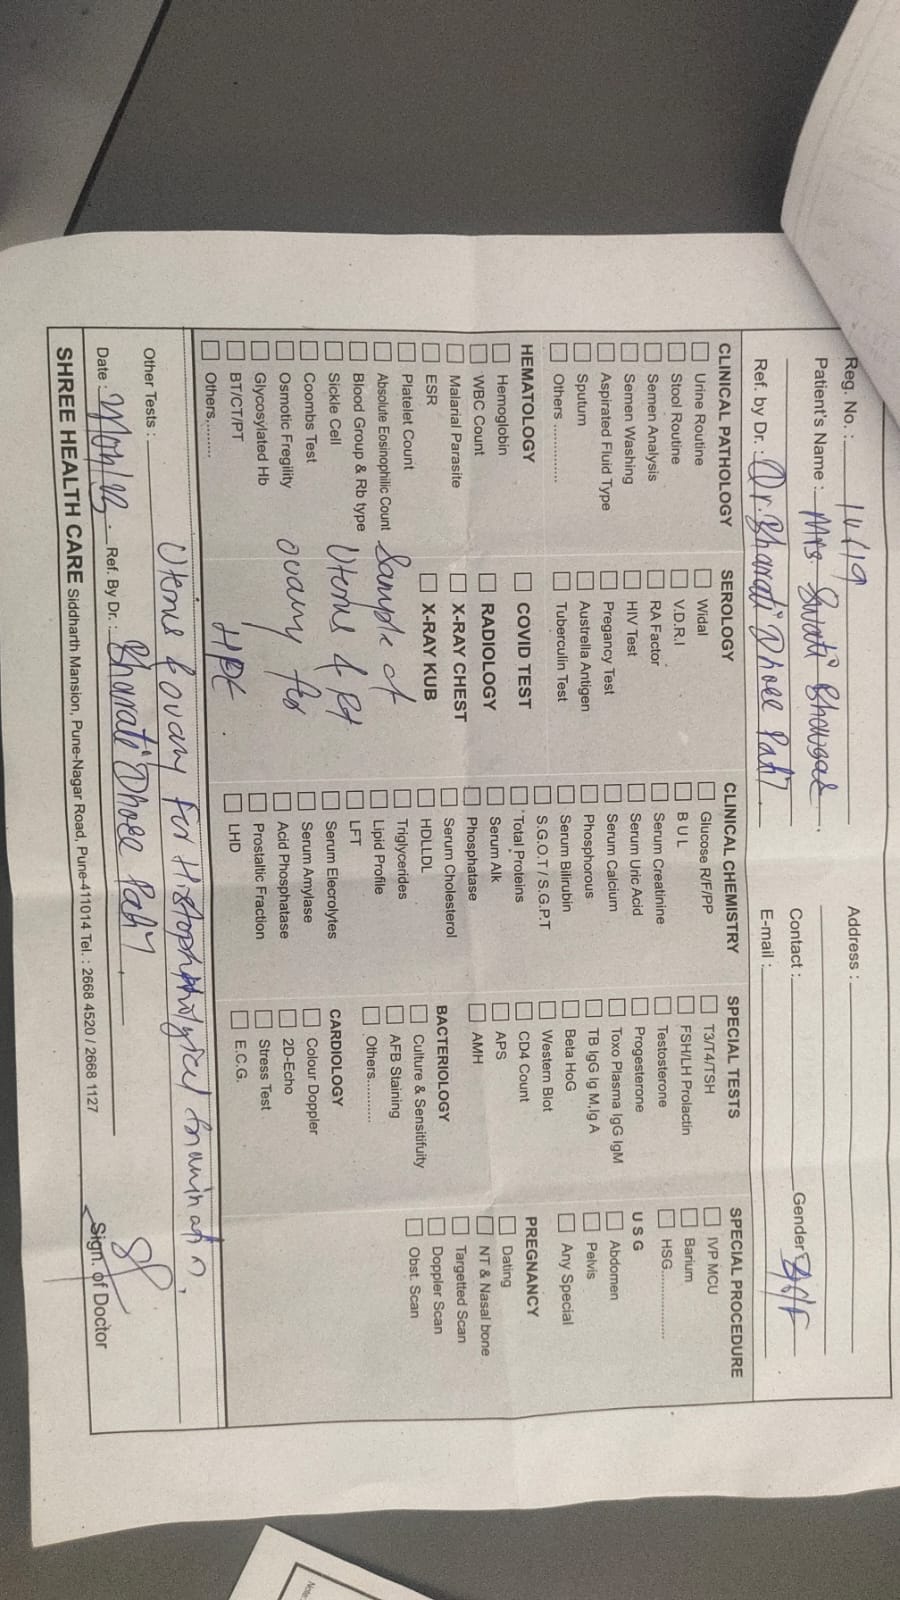 Reg. No. : 14/19
Address :
Patient's Name : Mrs. Swati Bhawgae
Contact : Gender
Ref. by Dr. : Dr. Bharati Dhoee Patil
E-mail :
CLINICAL PATHOLOGY
Urine Routine
Stool Routine
Semen Analysis
Semen Washing
Aspirated Fluid Type
Sputum
Others ............
HEMATOLOGY
Hemoglobin
WBC Count
Malarial Parasite
ESR
Platelet Count
Absolute Eosinophilic Count
Blood Group & Rb type
Sickle Cell
Coombs Test
Osmotic Fregility
Glycosylated Hb
BT/CT/PT
Others..........
SEROLOGY
Widal
V.D.R.I
RA Factor
HIV Test
Pregancy Test
Austrella Antigen
Tuberculin Test
COVID TEST
RADIOLOGY
X-RAY CHEST
X-RAY KUB
Sample of
Uterus & Rt
ovary for
HPE
CLINICAL CHEMISTRY
Glucose R/F/PP
B U L
Serum Creatinine
Serum Uric Acid
Serum Calcium
Phosphorous
Serum Bilirubin
S.G.O.T / S.G.P.T
Total Proteins
Serum Alk
Phosphatase
Serum Cholesterol
HDLLDL
Triglycerides
Lipid Profile
LFT
Serum Elecrolytes
Serum Amylase
Acid Phosphatase
Prostaltic Fraction
LHD
SPECIAL TESTS
T3/T4/TSH
FSH/LH Prolactin
Testosterone
Progesterone
Toxo Plasma IgG IgM
TB IgG Ig M,Ig A
Beta HoG
Western Blot
CD4 Count
APS
AMH
BACTERIOLOGY
Culture & Sensitifuity
AFB Staining
Others...........
CARDIOLOGY
Colour Doppler
2D-Echo
Stress Test
E.C.G.
SPECIAL PROCEDURE
IVP MCU
Barium
HSG................
U S G
Abdomen
Pelvis
Any Special
PREGNANCY
Dating
NT & Nasal bone
Targetted Scan
Doppler Scan
Obst. Scan
Other Tests : Uterus & ovary for Histophpholygical Examination,
Date : Ref. By Dr. : Bharati Dhoee Patil
Sign. of Doctor
SHREE HEALTH CARE Siddharth Mansion, Pune-Nagar Road, Pune-411014 Tel. : 2668 4520 / 2668 1127